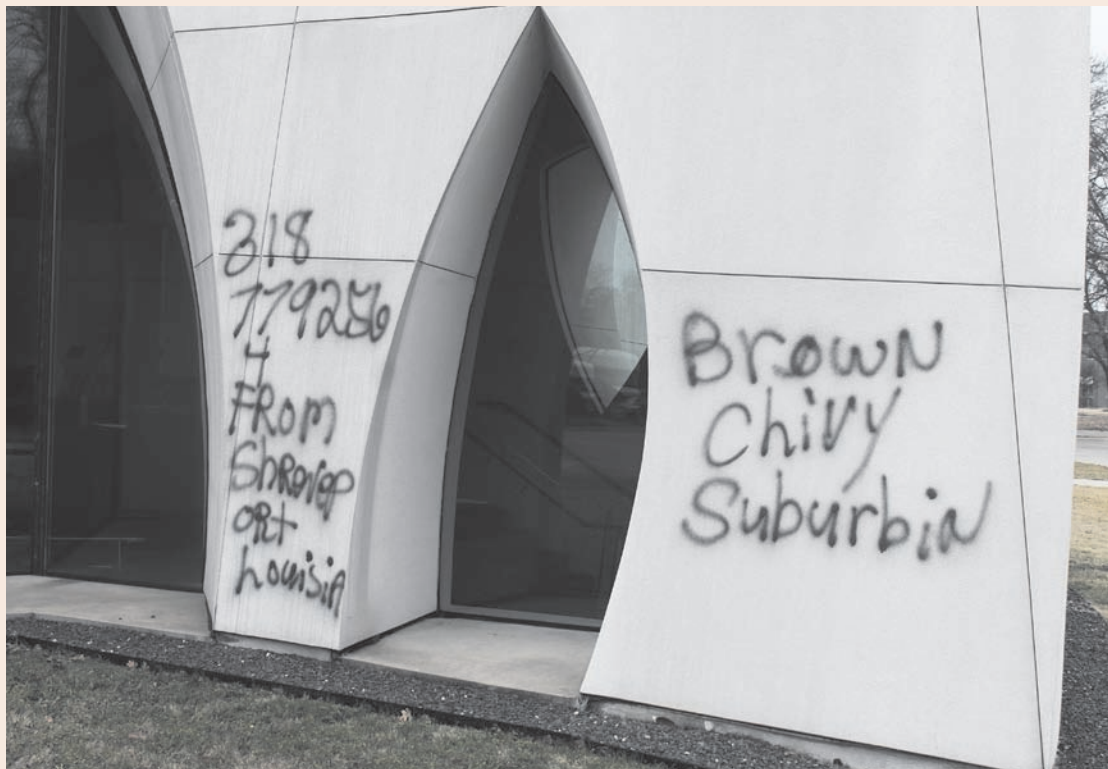 318
779256
4
FROM
Shrevep
ORt
Louisia
Brown
Chivy
Suburbia